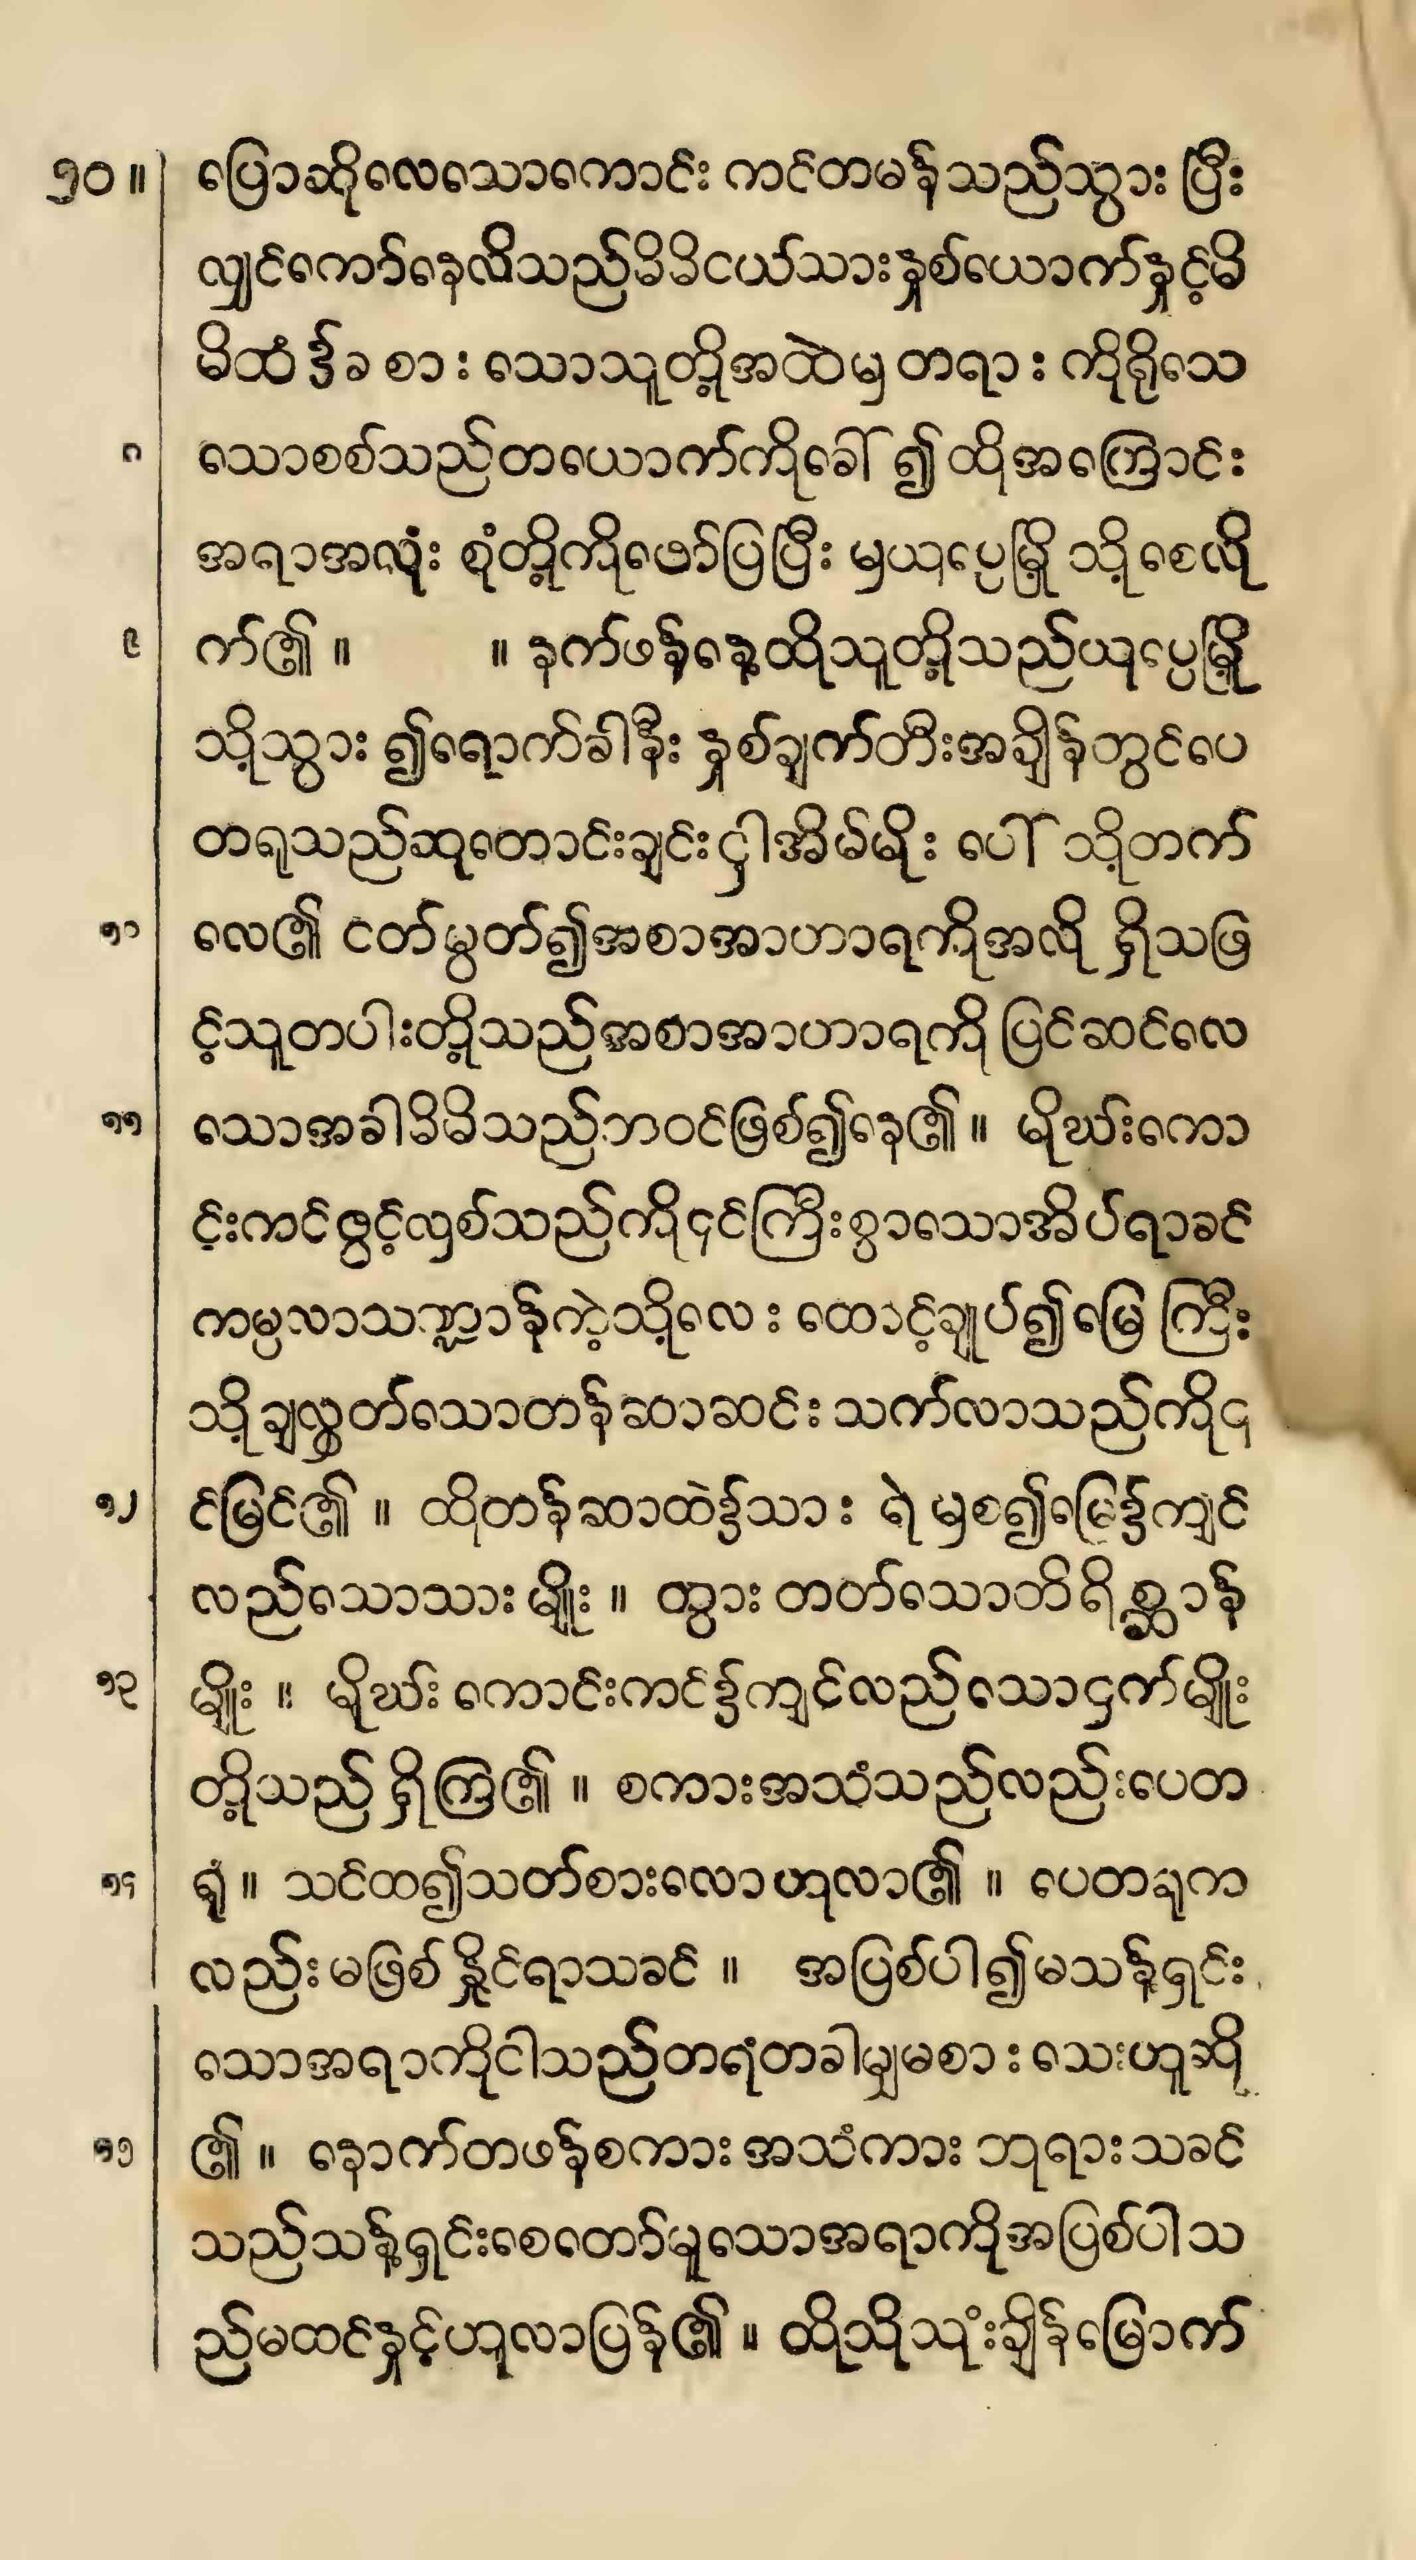 ၅၀။ ပြောဆိုလေသောကောင်း ကင်တမန်သည်သွား ပြီး
လျှင်ကော်နေလိသည်မိမိငယ်သားနှစ်ယောက်နှင့်မိ
မိထံ ၌ခ စား သောသူတို့အထဲမှ တရား ကိုရိုသေ
၈ သောစစ်သည်တယောက်ကိုခေါ် ၍ ထိုအကြောင်း
အရာအလုံး စုံတို့ကိုဖော်ပြပြီး မှယုပ္ပေမြို့ သို့စေလို
၉ က်၏ ။ ။ နက်ဖန်နေ့ထိုသူတို့သည်ယုပ္ပေမြို့
သို့သွား ၍ရောက်ခါနီး နှစ်ချက်တီးအချိန်တွင်ပေ
တရုသည်ဆုတောင်းချင်း ငှါအိမ်မိုး ပေါ် သို့တက်
၁၀ လေ၏ ငတ်မွတ်၍အစာအာဟာရကိုအလို ရှိသဖြ
င့်သူတပါးတို့သည်အစာအာဟာရကို ပြင်ဆင်လေ
၁၁ သောအခါမိမိသည်ဘဝင်ဖြစ်၍နေ၏ ။ မိုဃ်းကော
င်းကင်ဖွင့်လှစ်သည်ကို၎င်ကြီးစွာသောအိပ်ရာခင်
ကမ္ပလာသဏ္ဍာန်ကဲ့သို့လေး ထောင့်ချုပ်၍မြေ ကြီး
သို့ချလွှတ်သောတန်ဆာဆင်း သက်လာသည်ကို၎
၁၂ င်မြင်၏ ။ ထိုတန်ဆာထဲ၌သား ရဲ မှစ၍မြေ၌ကျင်
လည်သောသားမျိုး ။ တွား တတ်သောတိရိစ္ဆာန်
၁၃ မျိုး ။ မိုဃ်း ကောင်းကင်၌ကျင်လည်သောငှက်မျိုး
တို့သည် ရှိကြ၏ ။ စကားအသံသည်လည်းပေတ
၁၄ ရုံ ။ သင်ထ၍သတ်စားလောဟုလာ၏ ။ ပေတရုက
လည်းမဖြစ်နှိုင်ရာသခင် ။ အပြစ်ပါ၍မသန့်ရှင်း
သောအရာကိုငါသည်တရံတခါမျှမစား သေးဟူဆို
၁၅ ၏ ။ နောက်တဖန်စကားအသံကား ဘုရားသခင်
သည်သန့်ရှင်းစေတော်မူသောအရာကိုအပြစ်ပါသ
ည်မထင်နှင့်ဟူလာပြန်၏ ။ ထိုသို့သုံးချိန်မြောက်